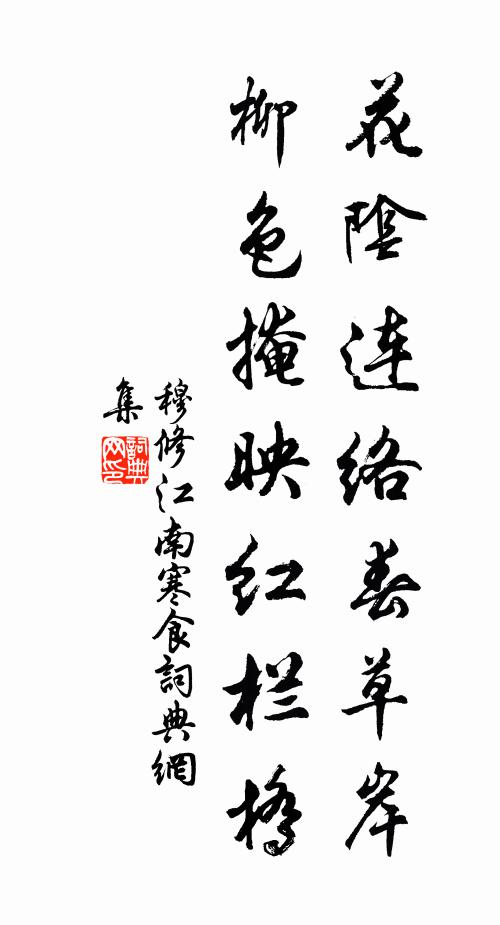 花陰連絡春草岸
柳色掩映紅栏橋
穆修江南寒食詞典網
集
詞典网印